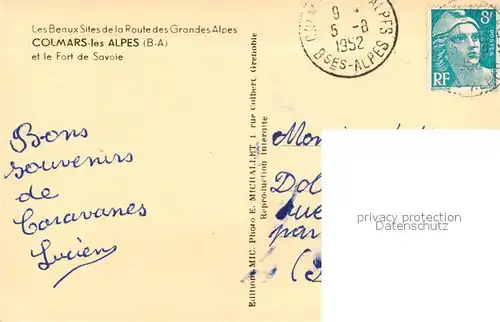 Les Beaux Sites de la Route des Grandes Alpes
COLMARS-les ALPES (B-A)
et le Fort de Savoie
9 *
5 -8
1952
BSES-ALPES
8F
POSTES
RF
Bons
souvenirs
de
Caravanes
Lucien
Editions MIC. Photo E. MICHALLET, 1 rue Colbert, Grenoble
Reproduction Interdite
privacy protection
Datenschutz